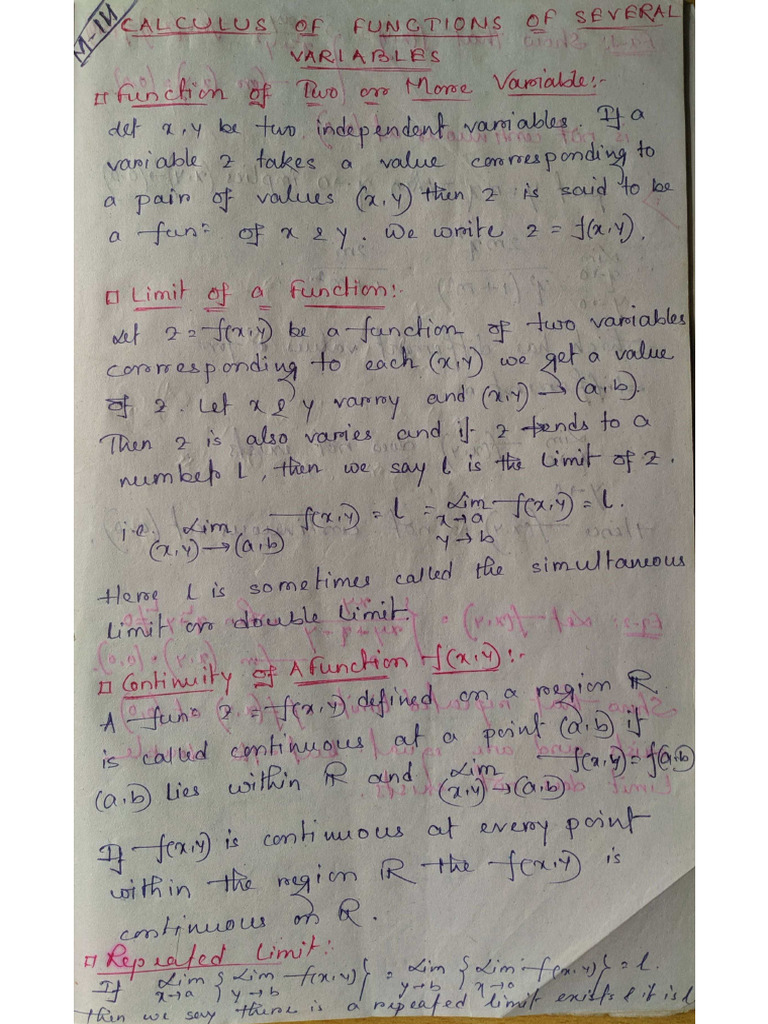 M-III
CALCULUS OF FUNCTIONS OF SEVERAL
VARIABLES
Function of Two or More Variable:-
Let x, y be two independent variables. If a
variable z takes a value corresponding to
a pair of values (x, y) then z is said to be
a funⁿ of x & y. We write z = f(x, y).
Limit of a Function:-
Let z = f(x, y) be a function of two variables
corresponding to each (x, y) we get a value
of z. Let x & y varry and (x, y) → (a, b).
Then z is also varies and if z tends to a
number l, then we say l is the limit of z.
i.e. Lim f(x, y) = l = Lim f(x, y) = l.
(x, y) → (a, b) x → a
y → b
Here l is sometimes called the simultaneous
limit or double limit.
Continuity of A Function f(x, y):-
A funⁿ z = f(x, y) defined on a region R
is called continuous at a point (a, b) if
(a, b) lies within R and Lim f(x, y) = f(a, b)
(x, y) → (a, b)
If f(x, y) is continuous at every point
within the region R the f(x, y) is
continuous on R.
Repeated Limit:-
If Lim { Lim f(x, y) } = Lim { Lim f(x, y) } = l.
x → a y → b y → b x → a
then we say there is a repeated limit exists & it is l